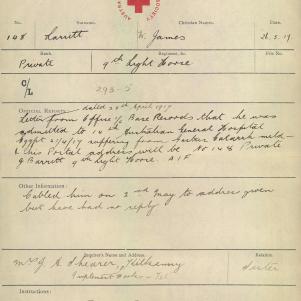 No.
Surname.
Christian Names.
Date.
148
Barrett
W. James
21.5.17
Rank.
Regiment, &c.
File No.
Private
9th Light Horse
C/L
293-5
OFFICIAL REPORTS: dated 28th April 1917
Letter from Office i/c Base Records that he was
admitted to 14th Australian General Hospital
Egypt 21/4/17 suffering from
his Postal address will be No 148 Private
J Barrett 9th Light Horse. A I F
Other Information:
Cabled him on 2nd May to address given
but have had no reply
Enquirer's Name and Address.
Relation
Mrs J. A Shearer, Kilkenny
Sister
Implement Works
Instructions: